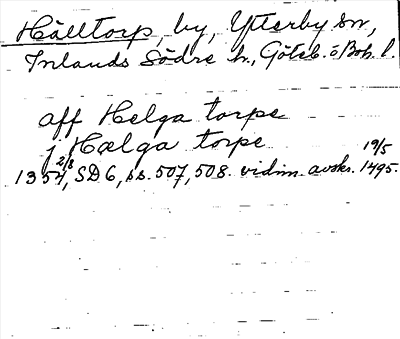 Hälltorp, by, Ytterby sn,
Inlands Södre h., Göteb. o. Boh. l.
aff Helga torpe
j Hælga torpe
1354 2/8, SD 6, ss. 507, 508. vidim. avskr. 19/5 1495.